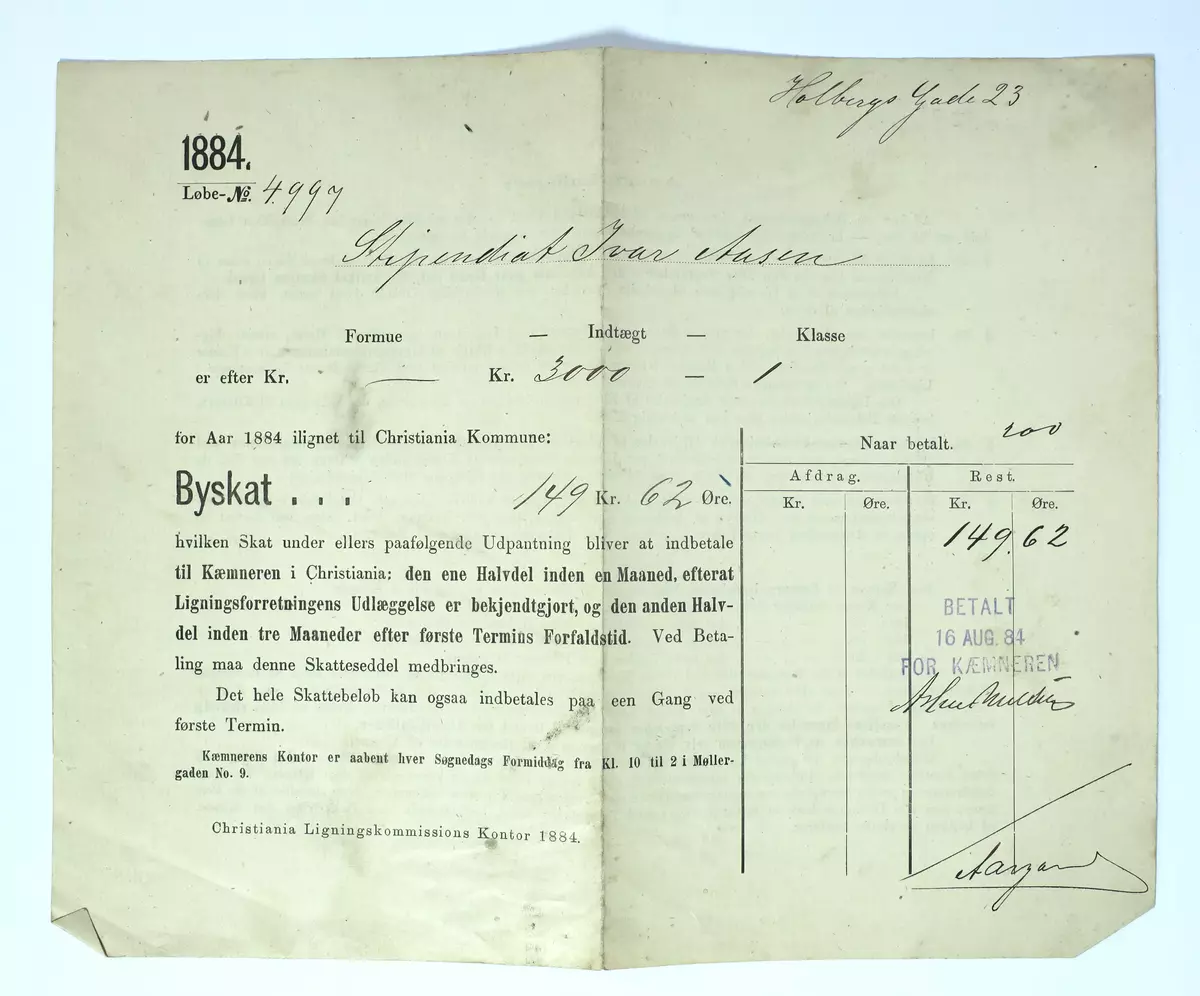 Holbergs Gade 23
1884.
Løbe-No. 4997
Stipendiat Ivar Aasen
Formue — Indtægt — Klasse
er efter Kr. — Kr. 3000 — 1
for Aar 1884 ilignet til Christiania Kommune:
Byskat . . . 149 Kr. 62 Øre.
hvilken Skat under ellers paafølgende Udpantning bliver at indbetale
til Kæmneren i Christiania: den ene Halvdel inden en Maaned, efterat
Ligningsforretningens Udlæggelse er bekjendtgjort, og den anden Halv-
del inden tre Maaneder efter første Termins Forfaldstid. Ved Beta-
ling maa denne Skatteseddel medbringes.
Det hele Skattebeløb kan ogsaa indbetales paa een Gang ved
første Termin.
Kæmnerens Kontor er aabent hver Søgnedags Formiddag fra Kl. 10 til 2 i Møller-
gaden No. 9.
Christiania Ligningskommissions Kontor 1884.
200
Naar betalt.
Afdrag. Rest.
Kr. Øre. Kr. Øre.
149. 62
BETALT
16 AUG. 84
FOR KÆMNEREN